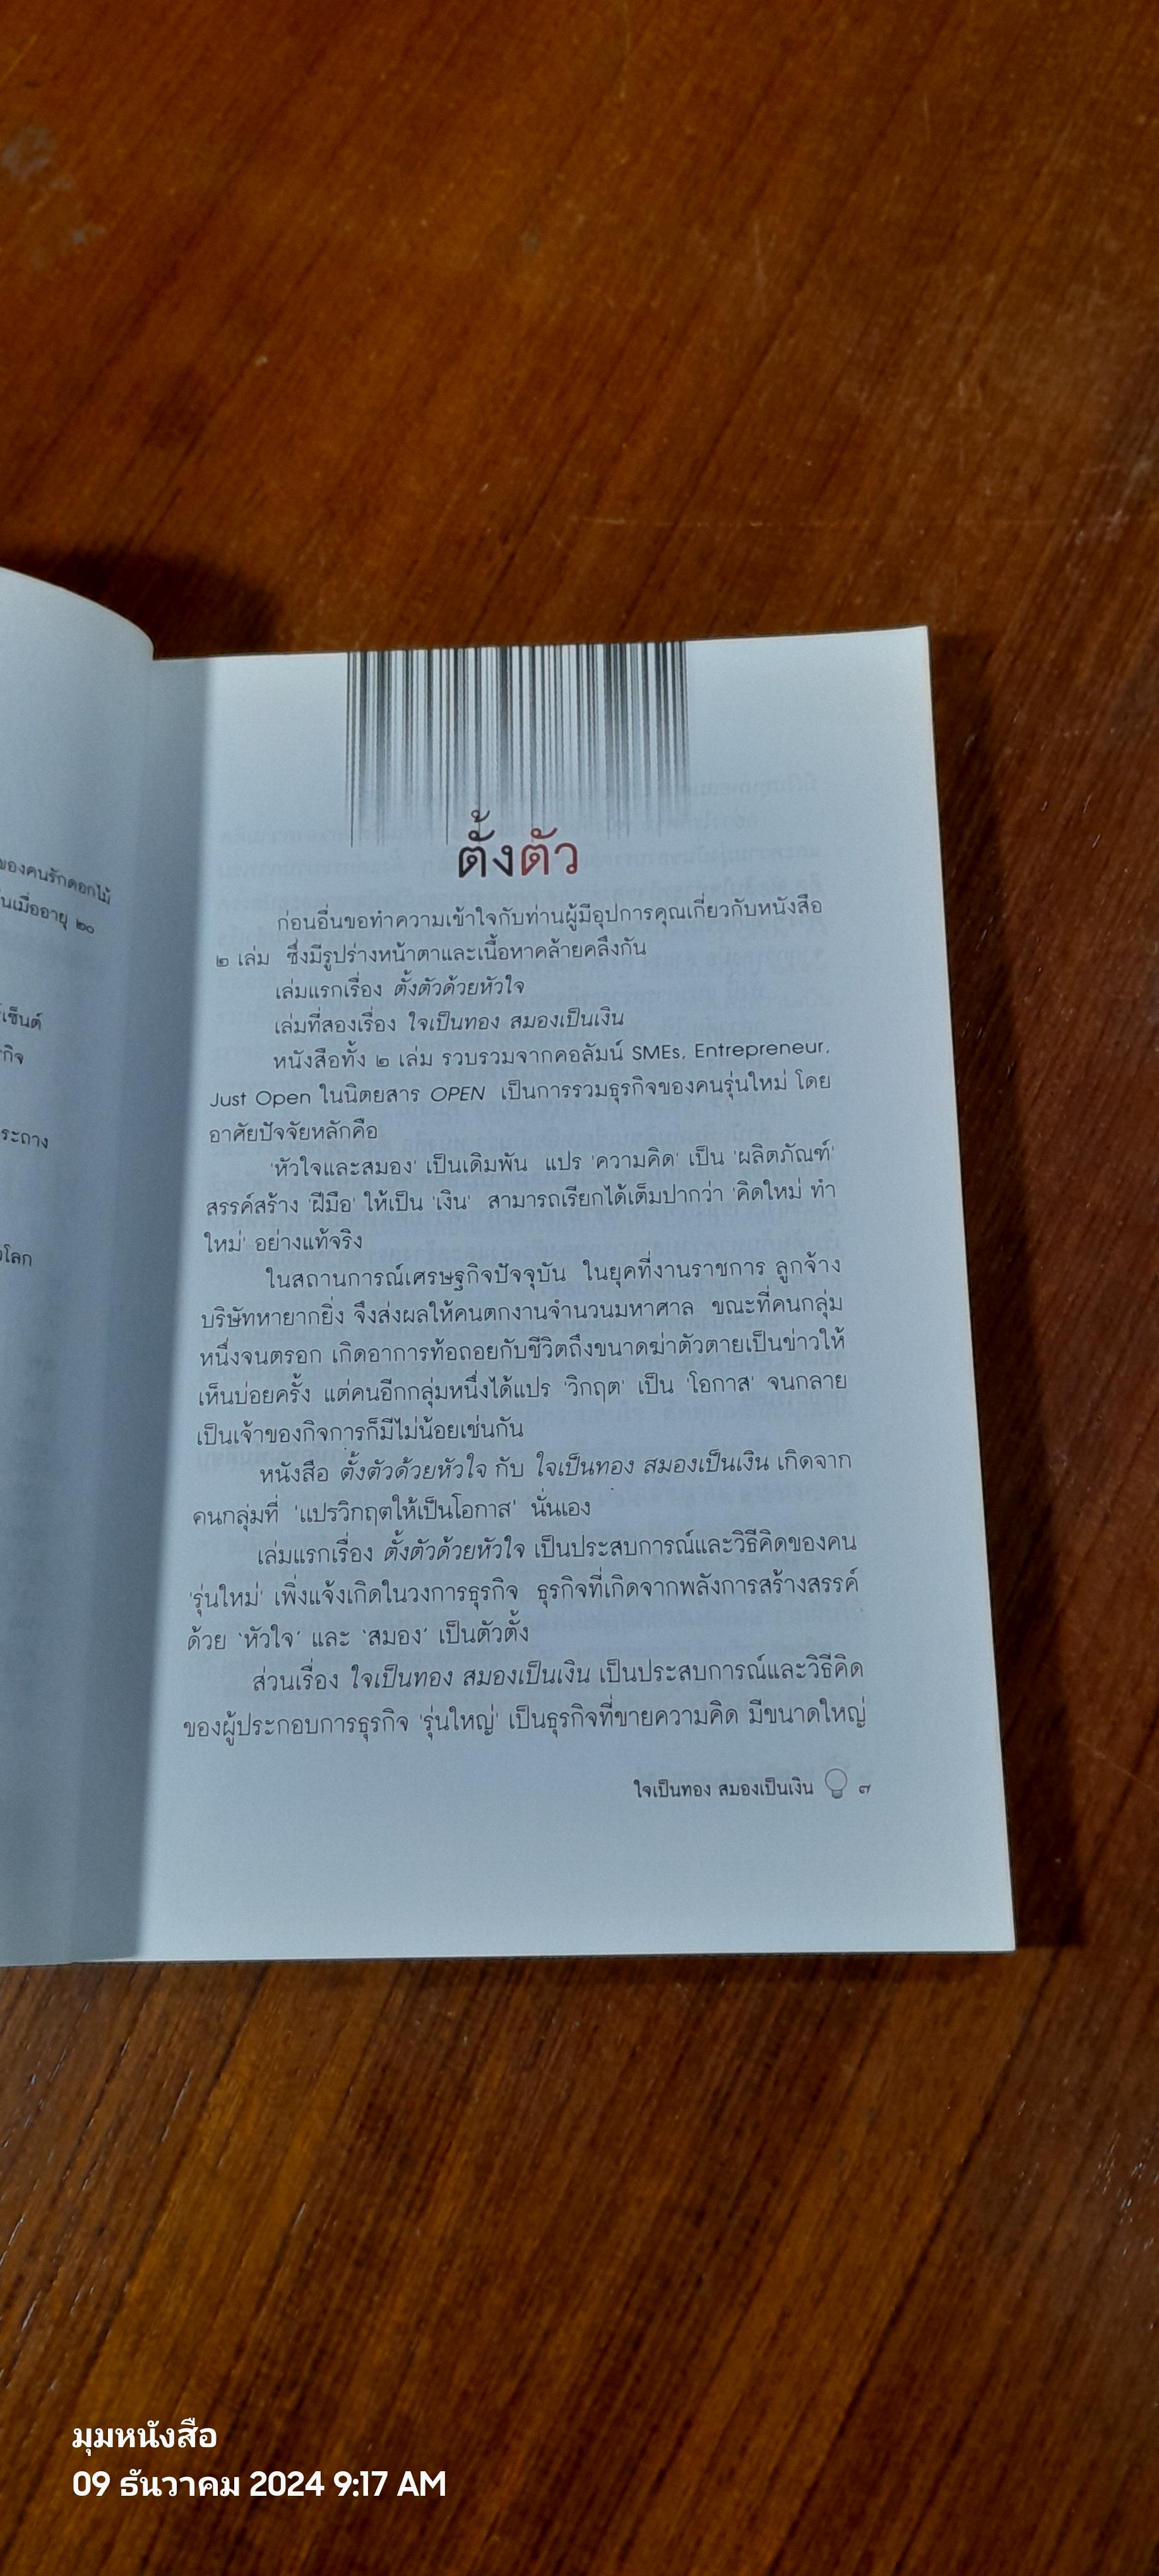 ของคนรักดอกไม้
นเมื่ออายุ ๒๐
เซ็นต์
กิจ
ระถาง
โลก
ตั้งตัว
ก่อนอื่นขอทำความเข้าใจกับท่านผู้มีอุปการคุณเกี่ยวกับหนังสือ
๒ เล่ม ซึ่งมีรูปร่างหน้าตาและเนื้อหาคล้ายคลึงกัน
เล่มแรกเรื่อง ตั้งตัวด้วยหัวใจ
เล่มที่สองเรื่อง ใจเป็นทอง สมองเป็นเงิน
หนังสือทั้ง ๒ เล่ม รวบรวมจากคอลัมน์ SMEs, Entrepreneur,
Just Open ในนิตยสาร OPEN เป็นการรวมธุรกิจของคนรุ่นใหม่ โดย
อาศัยปัจจัยหลักคือ
'หัวใจและสมอง' เป็นเดิมพัน แปร 'ความคิด' เป็น 'ผลิตภัณฑ์'
สรรค์สร้าง 'ฝีมือ' ให้เป็น 'เงิน' สามารถเรียกได้เต็มปากว่า 'คิดใหม่ ทำ
ใหม่' อย่างแท้จริง
ในสถานการณ์เศรษฐกิจปัจจุบัน ในยุคที่งานราชการ ลูกจ้าง
บริษัทหายากยิ่ง จึงส่งผลให้คนตกงานจำนวนมหาศาล ขณะที่คนกลุ่ม
หนึ่งจนตรอก เกิดอาการท้อถอยกับชีวิตถึงขนาดฆ่าตัวตายเป็นข่าวให้
เห็นบ่อยครั้ง แต่คนอีกกลุ่มหนึ่งได้แปร 'วิกฤต' เป็น 'โอกาส' จนกลาย
เป็นเจ้าของกิจการก็มีไม่น้อยเช่นกัน
หนังสือ ตั้งตัวด้วยหัวใจ กับ ใจเป็นทอง สมองเป็นเงิน เกิดจาก
คนกลุ่มที่ 'แปรวิกฤตให้เป็นโอกาส' นั่นเอง
เล่มแรกเรื่อง ตั้งตัวด้วยหัวใจ เป็นประสบการณ์และวิธีคิดของคน
'รุ่นใหม่' เพิ่งแจ้งเกิดในวงการธุรกิจ ธุรกิจที่เกิดจากพลังการสร้างสรรค์
ด้วย 'หัวใจ' และ 'สมอง' เป็นตัวตั้ง
ส่วนเรื่อง ใจเป็นทอง สมองเป็นเงิน เป็นประสบการณ์และวิธีคิด
ของผู้ประกอบการธุรกิจ 'รุ่นใหญ่' เป็นธุรกิจที่ขายความคิด มีขนาดใหญ่
ใจเป็นทอง สมองเป็นเงิน ๗
มุมหนังสือ
09 ธันวาคม 2024 9:17 AM